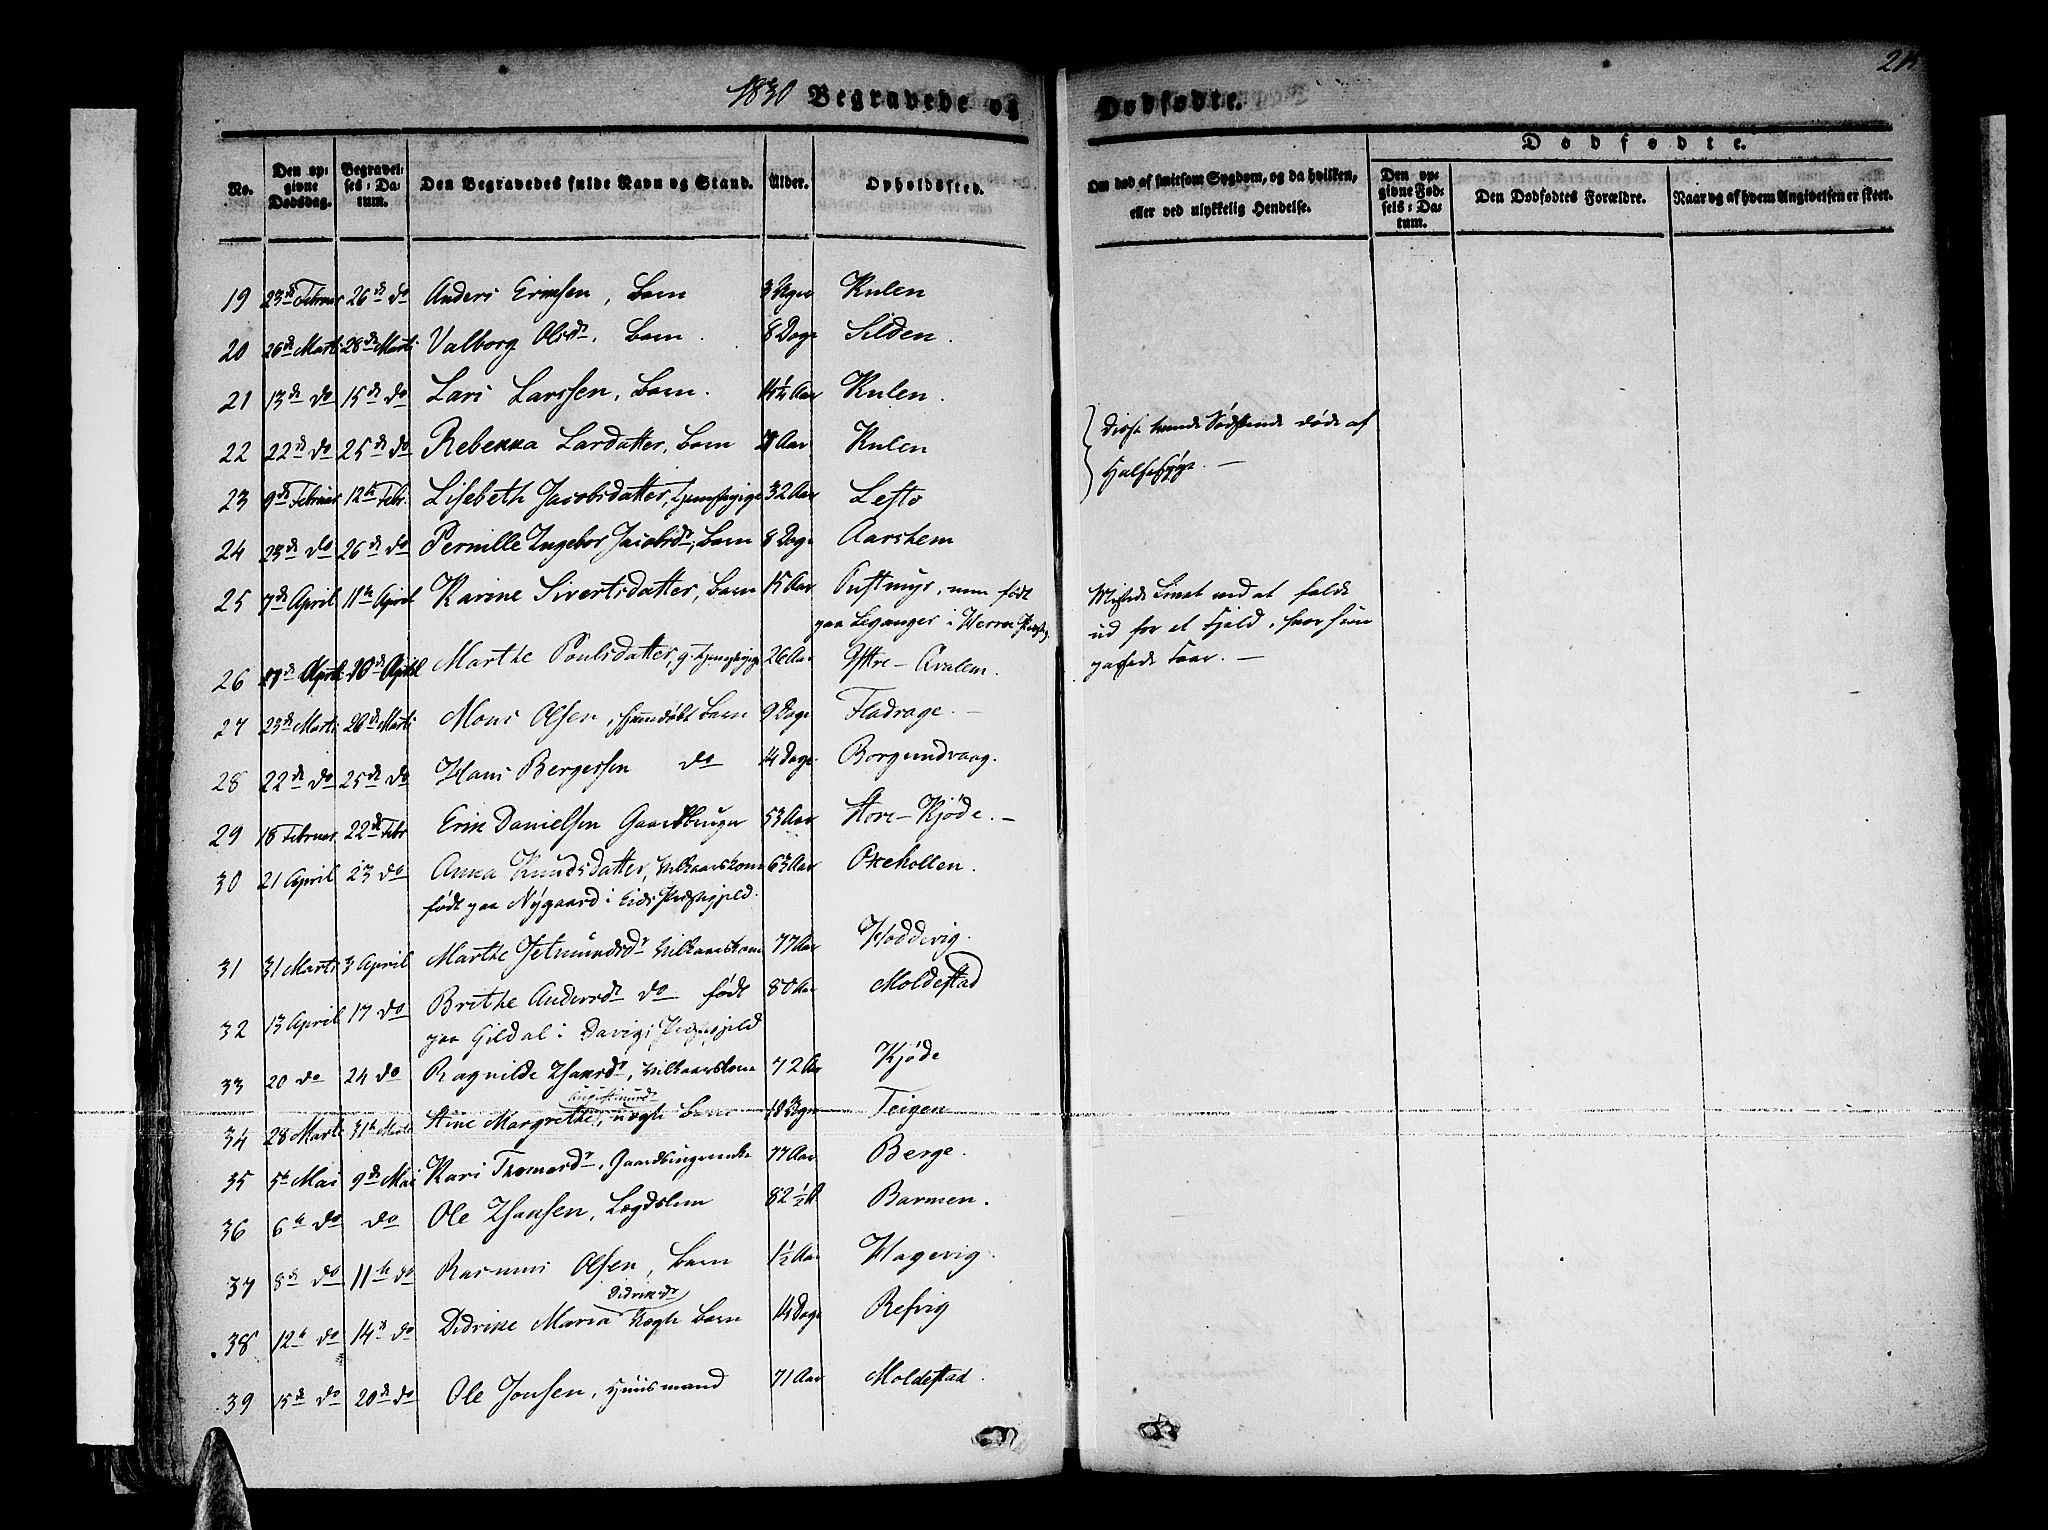 1830 Begravede og Dødfødte.
No. Den opgivne Dødsdag. Begravelses-Datum. Den Begravedes fulde Navn og Stand. Alder. Opholdssted. Om død af smitsom Sygdom, og da hvilken, eller ved ulykkelig Hendelse.
Dødfødte.
Den opgivne Fødsels-Datum. Den Dødfødtes Forældre. Naar og af hvem Angivelsen er skeet.
19 23de Februar 26de do Anders Ericksen, Barn 3 Uger Kulen
20 26de Marti 28de Marti Valborg Olsdr, Barn. 8 Dage Silden.
21 13de do 15de do Lars Larssen, Barn. Aar Kulen.
22 22de do 25de do Rebekka Larsdatter, Barn Aar Kulen
Disse tvende Sødskende døde af
Halsesyge. —
23 9de Februar 12te Febr. Lisebeth Jacobsdatter, 32 Aar Lesto
24 23de do 26de do Pernille Ingebor Jacobsdr, Barn 8 Dage Aarshem
25 7de April 11te April Karine Sivertsdatter, Barn 15 Aar Tuftmyr, men født
paa Leganger i Herrøe
Mistede Livet ved at falde
ud for et Fjeld, hvor hun
passede Faar. —
26 April April Marthe Poulsdatter, g. 26 Aar Yttre-Qvalem.
27 23de Marti 28de Marti Mons Olsen, hjemdøbt Barn 9 Dage Fladrage. —
28 22de do 25de do Hans Bergersen do 14 Dage Borgundvaag.
29 18 Februar 22de Febr Erik Danielsen Gaardbruger 53 Aar Store-Kjøde. —
30 21 April 23 do Anna Knudsdatter, Vilkaarskone 63 Aar Oxehollen.
født paa Nygaard i Eids Præstegjeld.
31 31 Marts 3 April Marthe Jetmundsdr Vilkaarskone 77 Aar Hoddevig.
32 13 April 17 do Brithe Andersdr do født 80 Aar Moldestad
paa Gildal i Davigs Præstegjeld
33 20 do 24 do Ragnilde Hansdr, Vilkaarskone 72 Aar Kjøde
Augustinusdr
34 28 Marts 31te Marts Stine Margrethe, uægte Barn 18 Uger Teigen
35 5te Mai 9de Mai Kari Thomasdr, Gaardbrugerenke 77 Aar Berge.
36 6te do do Ole Hansen, Lægdslem 82 ½ A Barmen.
37 8de do 11te do Rasmus Olsen, Barn 1½ Aar Hagevig.
Didriksdr
38 12te do 14de do Didrike Maria uægte Barn 14 Dage Refvig
39 15de do 20de do Ole Jonsen, Huusmand 71 Aar Moldestad.